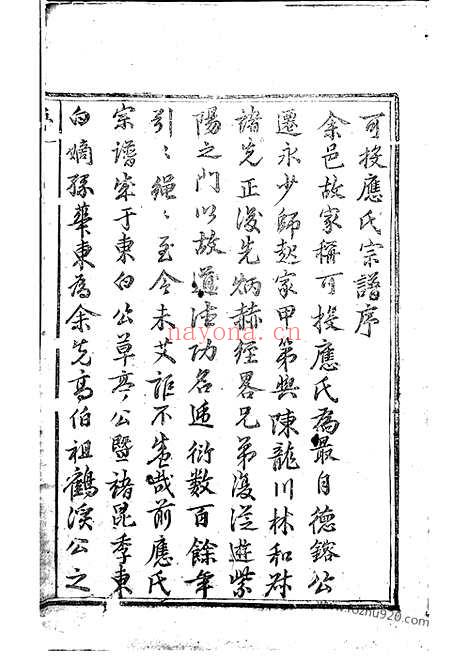 可投應氏宗譜序
余邑故家稱可投應氏為最自德鎔公
遷永少師起家甲第與陳龍川林和叔
諸先正後先炳赫經畧兄弟復從遊紫
陽之門以故道德功名遞衍數百餘年
引〻繩〻至今未艾詎不盛哉前應氏
宗譜彙于東白公草亭公暨諸昆季東
白嫡孫華東為余先高伯祖鶴溪公之
nayona.com
www.fozhu920.com